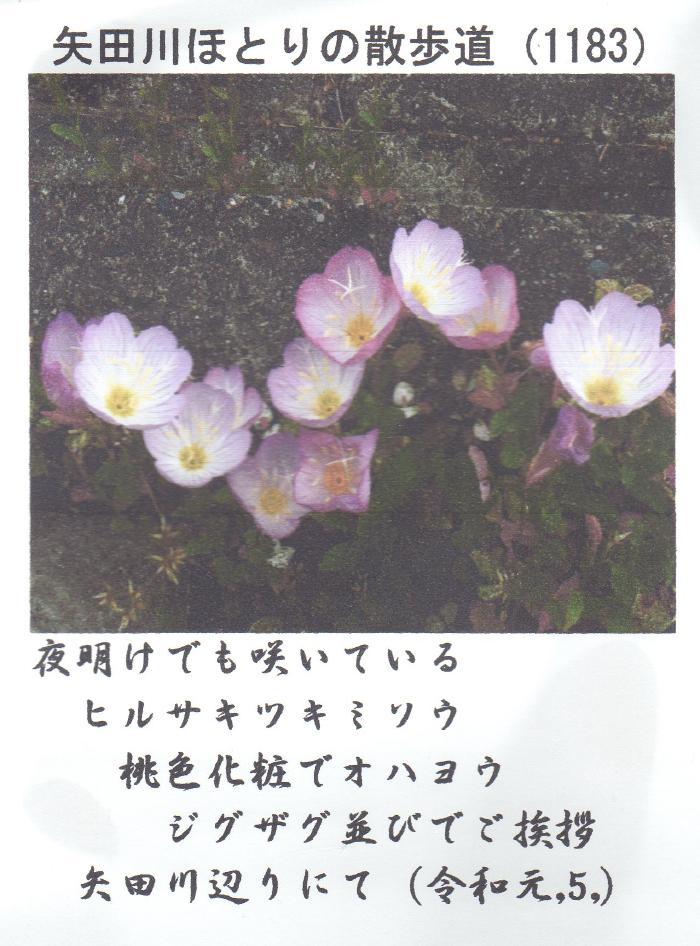 矢田川ほとりの散歩道（1183）
夜明けでも咲いている
ヒルサキツキミソウ
桃色化粧でオハヨウ
ジグザグ並びでご挨拶
矢田川辺りにて（令和元,5,）